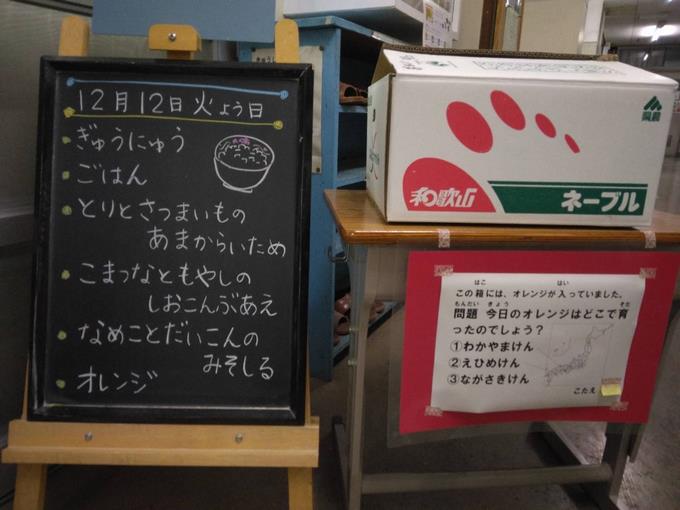 12月12日 火よう日
・ぎゅうにゅう
・ごはん
・とりとさつまいもの
あまからいため
・こまつなともやしの
しおこんぶあえ
・なめことだいこんの
みそしる
・オレンジ
和歌山
ネーブル
県農
この箱には、オレンジが入っていました。
はこ はい
問題 今日のオレンジはどこで育
もんだい きょう そだ
ったのでしょう？
①わかやまけん
②えひめけん
③ながさきけん
こたえ